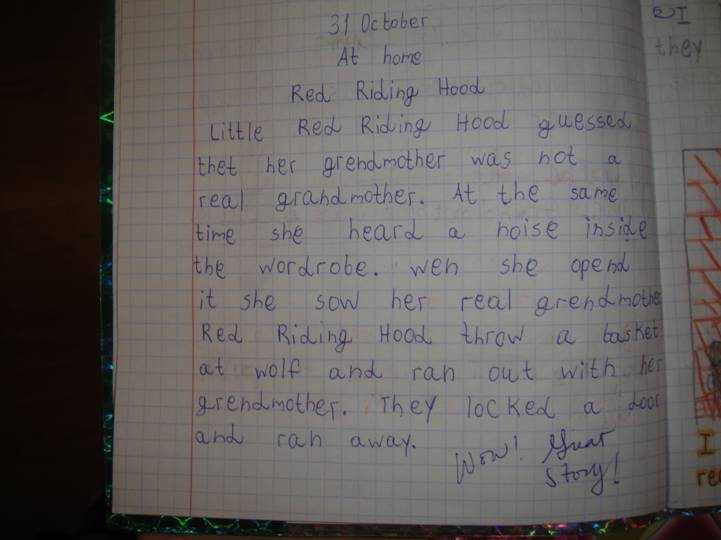 31 October
At home
Red Riding Hood
Little Red Riding Hood guessed
thet her grendmother was not a
real grandmother. At the same
time she heard a noise inside
the wordrobe. wen she opend
it she sow her real grendmothe
Red Riding Hood throw a basket
at wolf and ran out with her
grendmother. They locked a door
and ran away.
Wow! Great
Story!
I
they
I
rec